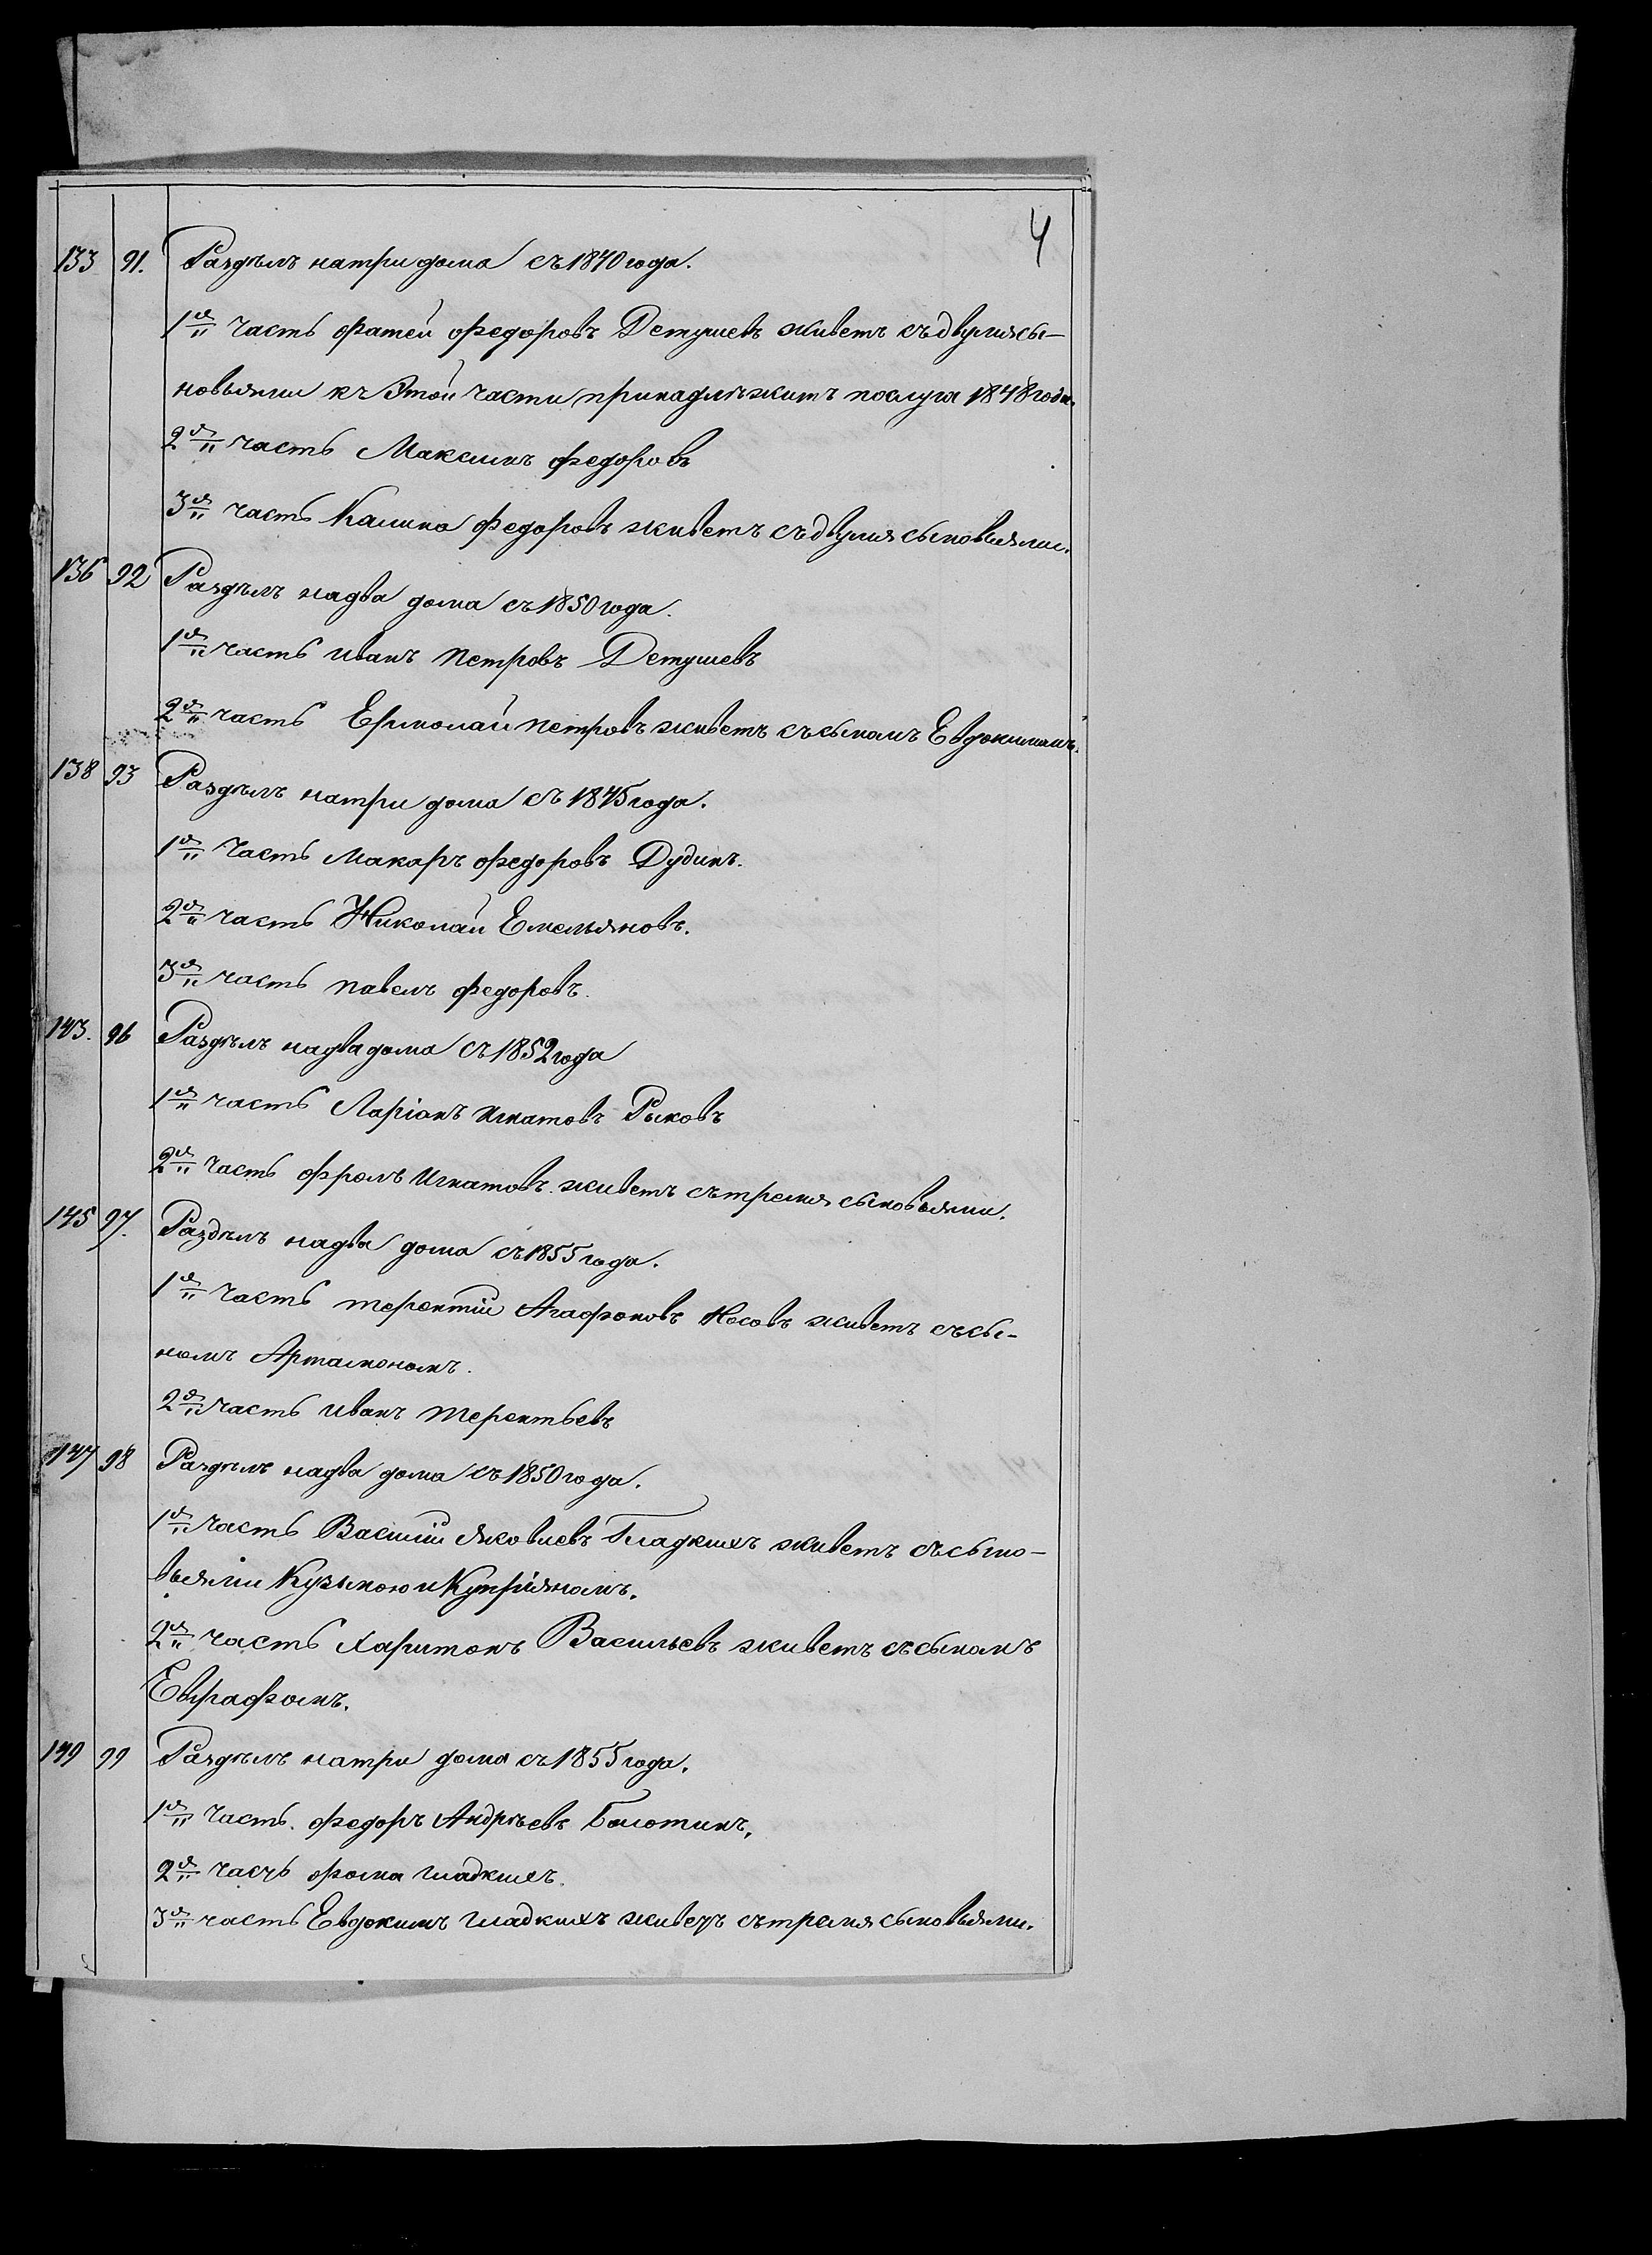 4
133 91. Раздѣлъ натри дома съ 1840 года.
1я часть Фатей Федоровъ Детушевъ живетъ съ двумя сы-
новьями къ Этой части принадлѣжитъ послуга 1848 года.
2я часть Максимъ Федоровъ
3я часть Калина Федоровъ живетъ съ двумя сыновьями.
136 92 Раздѣлъ надва дома съ 1850 года.
1я часть Иванъ Петровъ Детушевъ
2я часть Ермолай Петровъ живетъ съ сыномъ Евдокимомъ.
138 93 Раздѣлъ натри дома съ 1845 года.
1я часть Макаръ Федоровъ Дудинъ.
2я часть Николай Емельяновъ.
3я часть Павелъ Федоровъ.
143. 96 Раздѣлъ надва дома съ 1852 года
1я часть Ларіонъ Игнатовъ Рыковъ
2я часть Фролъ Игнатовъ живетъ съ тремя сыновьями.
145 97. Раздѣлъ надва дома съ 1855 года.
1я часть терентій Агафоновъ Носовъ живетъ съ сы-
номъ Артамономъ.
2я часть Иванъ терентьевъ
147 98 Раздѣлъ надва дома съ 1850 года.
1я часть Василій Яковлевъ Гладкихъ живетъ съ сыно-
вьями Кузьмою и Купріяномъ.
2я часть Харитонъ Васильевъ живетъ съ сыномъ
Евграфомъ.
149 99 Раздѣлъ натри дома съ 1855 года.
1я часть Федоръ Андрѣевъ Болотинъ.
2я часть Фома гладкихъ.
3я часть Евдокимъ гладкихъ живетъ съ тремя сыновьями.